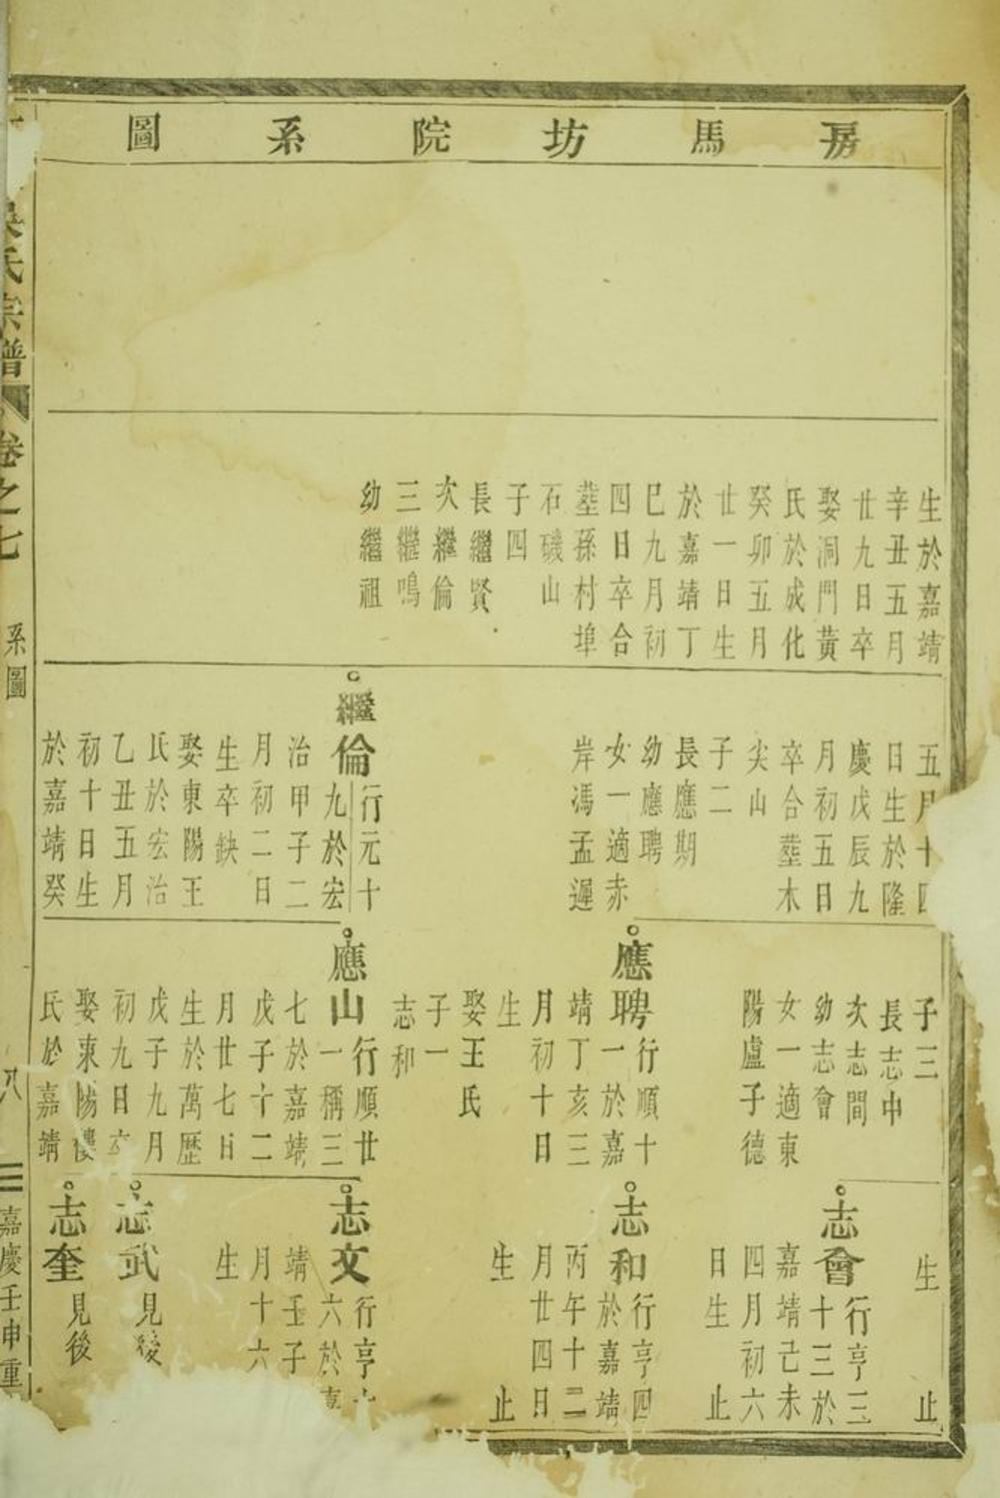 房馬坊院系圖
生於嘉靖
辛丑五月
廿九日卒
娶洞門黃
氏於成化
癸卯五月
廿一日生
於嘉靖丁
巳九月初
四日卒合
塟孫村埠
石磯山
子四
長繼賢
次繼倫
三繼鳴
幼繼祖
五月十四
日生於隆
慶戊辰九
月初五日
卒合塟木
尖山
子二
長應期
幼應聘
女一適赤
岸馮孟遲
繼倫行元十
九於宏
治甲子二
月初二日
生卒缺
娶東陽王
氏於宏治
乙丑五月
初十日生
於嘉靖癸
子三
長志中
次志間
幼志會
女一適東
陽盧子德
應聘行順十
一於嘉
靖丁亥三
月初十日
生
娶王氏
子一
志和
應山行順廿
一稱三
七於嘉靖
戊子十二
月廿七日
生於萬歷
戊子九月
初九日卒
娶東陽樓
氏於嘉靖
生止
志會行亨三
十三於
嘉靖己未
四月初六
日生止
志和行亨四
於嘉靖
丙午十二
月廿四日
生止
志文行亨
六於
靖壬子
月十六
生
志武見後
志奎見後
吳氏宗譜卷之七系圖八嘉慶壬申重